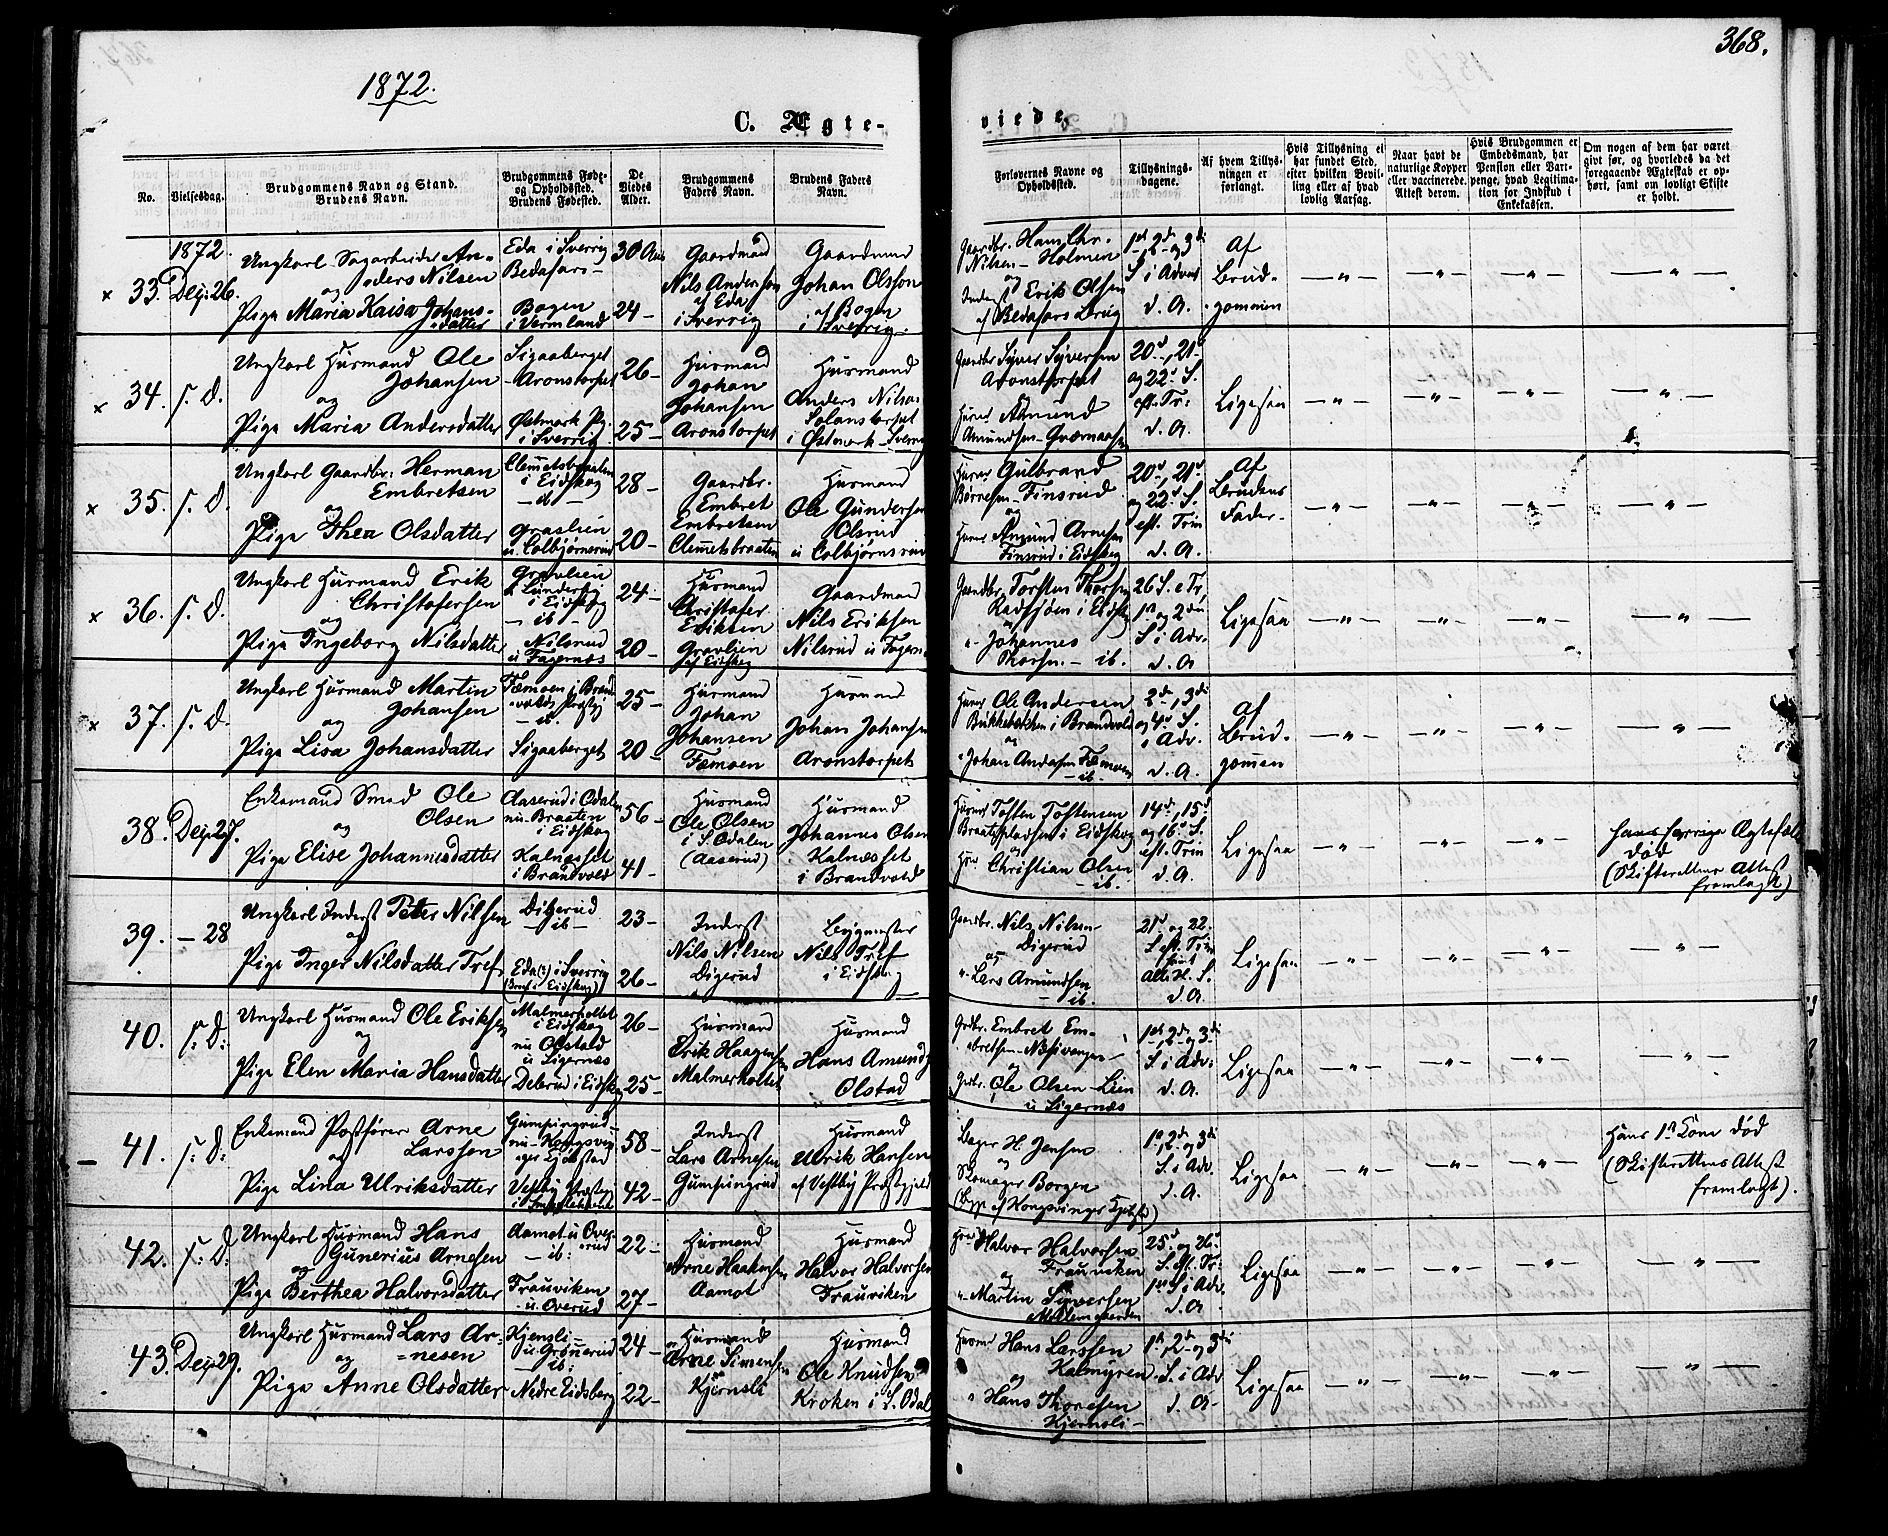 368.
1872.
C. Ægte-
viede.
No.
Vielsesdag.
Brudgommens Navn og Stand.
Brudens Navn.
Brudgommens Føde-
og Opholdssted.
Brudens Fødested.
De
Viedes
Alder.
Brudgommens
Faders Navn.
Brudens Faders
Navn.
Forlovernes Navne og
Opholdssted.
Tillysnings-
dagene.
Af hvem Tillys-
ningen er
forlangt.
Hvis Tillysning ei
har fundet Sted,
efter hvilken Bevil-
ling eller af hvad
lovlig Aarsag.
Naar havt de
naturlige Kopper
eller vaccinerede.
Attest derom.
Hvis Brudgommen er
Embedsmand, har
Pension eller Vart-
penge, hvad Legitima-
tion for Indskud i
Enkekassen.
Om nogen af dem har været
givt før, og hvorledes da det
foregaaende Ægteskab er op-
hørt, samt om lovligt Skifte
er holdt.
1872.
33. Dec: 26.
Ungkarl Sagarbeider An-
ders Nilsen
og
Pige Maria Kaisa Johans-
datter
Eda i Sverrig
Bedafors -
Bogen
i Vermland
30 Aar
24 -
Gaardmand
Nils Andersen
af Eda
i Sverrig
Gaardmand
Johan Olsson
af Bogen
i Sverrig.
Gaardbr. Hans Chr.
Nilsen - Holmen
og
Inderst Erik Olsen
af Bedafors Brug
1ste 2den og 3die
S. i Advent
d. A.
Af
Brud-
gommen
34. s. D.
Ungkarl Husmand Ole
Johansen
og
Pige Maria Andersdatter
Sigaaberget
- Aronstorpet
Østmark Pg.
i Sverrig
26 -
25 -
Husmand
Johan
Johansen
Aronstorpet
Husmand
Anders Nilsen
i Østmark - Sverrig
Gaardbr Syver Syversen
Aronstorpet
Husm Amund
Amundsen -
20de, 21de
og 22de S.
eft. Tr:
d. A.
Ligesaa
35. s. D.
Ungkarl Gaardbr: Herman
Embretsen
og
Pige Thea Olsdatter
Clemetsbraaten
i Eidskog
- ib -
Graslien
u. Colbjørnsrud
28 -
20 -
Gaardbr.
Embret
Embretsen
Clemetsbraaten
Husmand
Ole Gundersen
Olsrud
u Colbjørnsrud
Husm Gulbrand
Børresen - Finsrud
og
Husm Amund Arnesen
Finsrud i Eidskog
20de, 21de
og 22de S.
eft. Trin
d. A.
Af
Brudens
Fader -
36. s. D.
Ungkarl Husmand Erik
Christofersen
og
Pige Ingeborg Nilsdatter
Gravlien
u Lunderby
i Eidskog
- ib -
Nilsrud
u Fagernæs
24 -
20 -
Husmand
Christofer
Eriksen
Gravlien
af Eidskog
Gaardmand
Nils Eriksen
Nilsrud u Fagern.
Gaardbr Torsten Thorsen
Radsjøen i Eidskog
og
" Johannes
Thorsen - ib.
26 S. e Tr.
1ste og 2den
S. i Adv.
d. A
Ligesaa
37. s. D.
Ungkarl Husmand Martin
Johansen
og
Pige Lisa Johansdatter
Fæmoen i Brand-
vold Præstgj
- ib
Sigaaberget
25 -
20 -
Husmand
Johan
Johansen
Fæmoen
Husmand
Johan Johansen
Aronstorpet
Husm Ole Andersen
Bukkebækken i Brandvold
og
" Johan Andersen Fæmoen
- ib -
2den, 3die
og 4de S.
i Adv.
d. A.
Af
Brud-
gommen
38. Dec 27.
Enkemand Smed Ole
Olsen
og
Pige Elise Johannesdatter
Aaserud i Odalen
nu - Braaten
i Eidskog
Kalnæsset
i Brandvold
56 -
41 -
Husmand
Ole Olsen
i S. Odalen
(Aaserud)
Husmand
Johannes Olsen
Kalnæsset
i Brandvold
Husm Tosten Tostensen
Braatepladsen i Eidskog
og
Husm Christian Olsen
- ib.
14de, 15de
og 16de S.
eft. Trin
d. A.
Ligesaa
Hans forrige Ægtefælle
død
(Skifterettens Attest
fremlagt)
39. - 28
Ungkarl Inderst Peter Nilsen
og
Pige Inger Nilsdatter Træf
Digerud
- ib -
Eda (?) i Sverrig
(Boer i Eidskog)
23 -
26 -
Inderst
Nils Nilsen
Digerud
Bygmester
Nils Træf
i Eidskog
Gaardbr. Nils Nilsen
Digerud
og
" Lars Amundsen
- ib.
21de og 22.
S. eft. Trin
samt
Alle H. S.
d. A.
Ligesaa
40. s: D:
Ungkarl Husmand Ole Eriksen
og
Pige Elen Maria Hansdatter
Malmerholtet
i Eidskog
nu Olstad
u Ligernæs
Delerud i Eidskog
26 -
25 -
Husmand
Erik Haagensen
Malmerholtet
Husmand
Hans Amunds.
Olstad
Grdbr. Embret Em-
bretsen -
og
Grdbr. Ole Olsen - Lien
u Ligernæs
1ste, 2den og 3die
S. i Adv.
d. A.
Ligesaa
41. s: D:
Enkemand Postfører Arne
Larssen
og
Pige Lina Ulriksdatter
Gumpingrud -
nu - Kongsvin-
ger Kjøbstad
Vestby Prstgj
i Smaalehnene
58 -
42 -
Inderst
Lars Arnesen
Gumpingrud
Husmand
Ulrik Hansen
af Vestby Præstgjeld
Bager H. Jensen
og
Skomager Borgen
(Begge af Kongsvinger Kjøbst)
1ste, 2den og 3die
S. i Adv.
d. A.
Ligesaa
Hans 1ste Kone død
(Skifterettens Attest
fremlagt).
42. s: D:
Ungkarl Husmand Hans
Gunerius Arnesen
og
Pige Berthea Halvorsdatter
Aamot u Over-
rud
- ib:
Frauviken
u. Overud
22 -
27 -
Husmand
Arne Haakensen
Aamot
Husmand
Halvor Halvorsen
Frauviken
Husm Halvor Halvorsen
Frauviken
og
" Martin Sivertsen
25de og 26de
S. eft. Tr:
1ste S. i Adv.
d. A.
Ligesaa
43. Dec 29.
Ungkarl Husmand Lars Ar-
nesen
og
Pige Anne Olsdatter
Kjensli -
u. Grønnerud
- ib:
Nedre Eidsberg
24 -
22 -
Husmand
Arne Simensen
Kjernsli
Husmand
Ole Knudsen
Kroken i S. Odal
Husm Hans Larssen
Kalmyren
og
" Hans Thoresen
Kjernsli -
1ste, 2den og 3die
S. i Adv
d. A -
Ligesaa